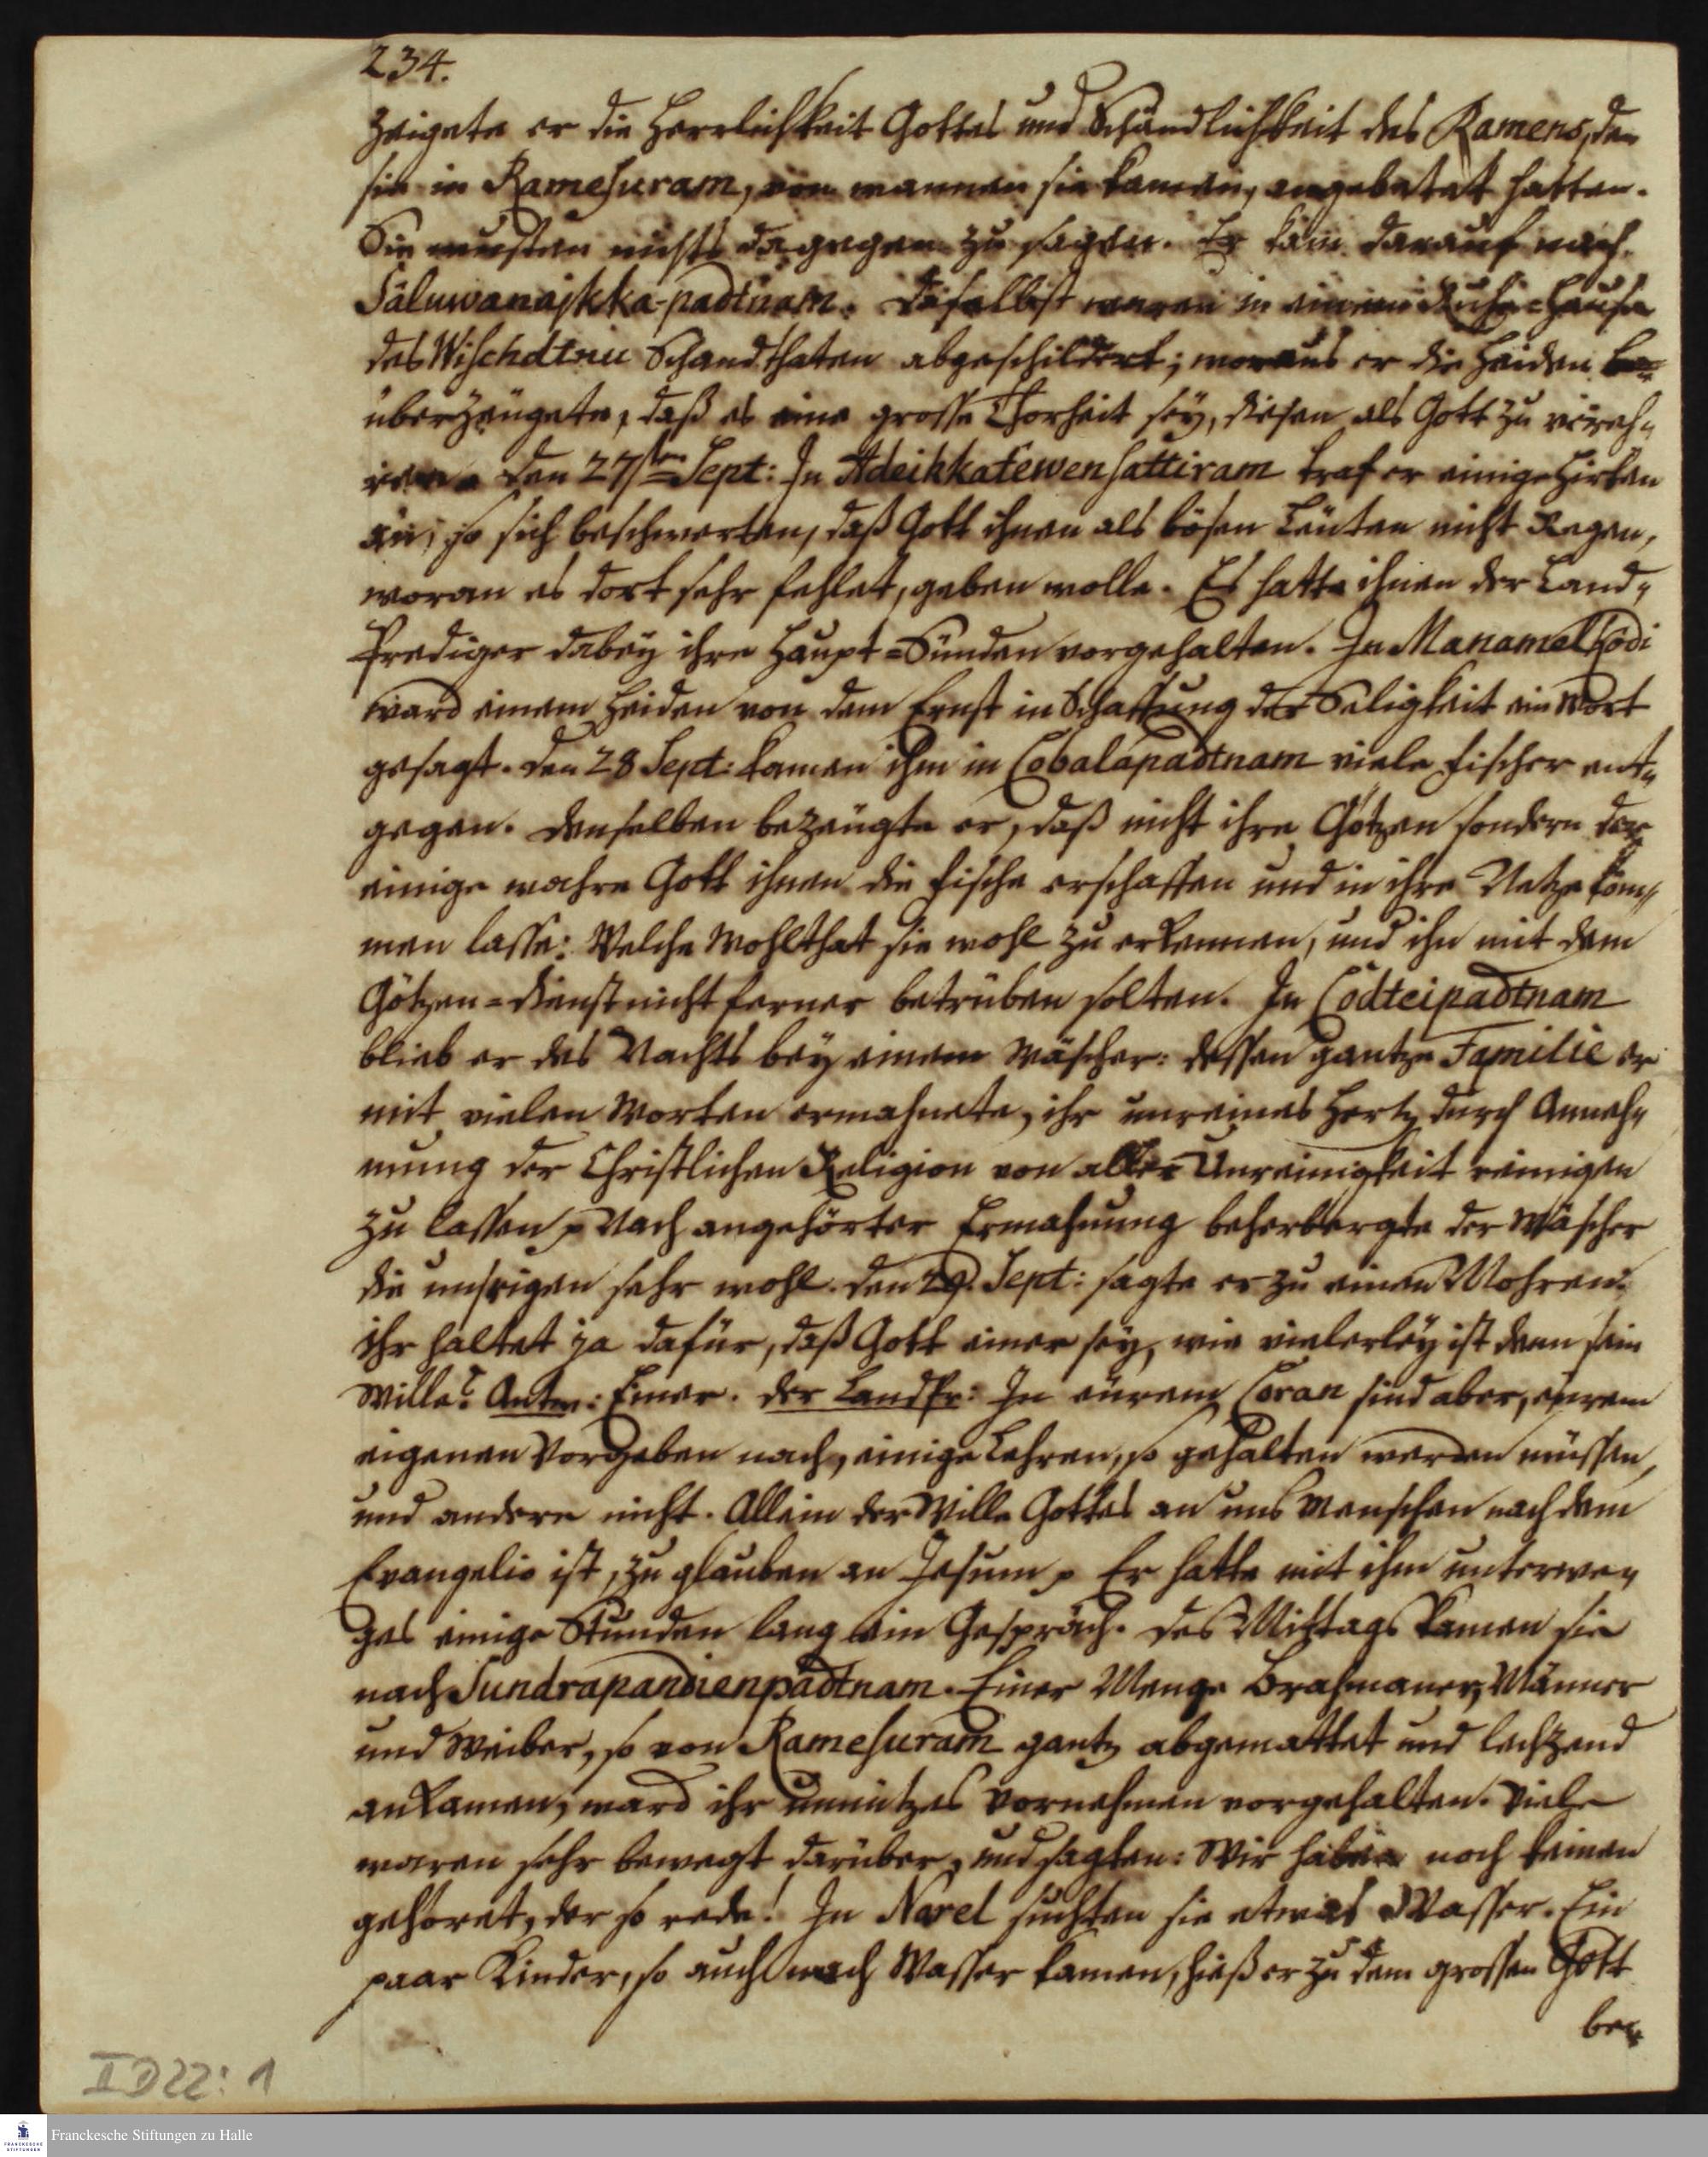 234.
zeigete er die Herrlichkeit Gottes und Schändlichkeit des Ramens, den
sie in Ramesuram, von wannen sie kamen, angebetet hatten.
Sie wusten nichts dagegen zu sagen. Er kam darauf nach
Sáluwanajkka-padtnam. Daselbst waren in einem Ruhe-Hause
des Wischdtnu Schandthaten abgeschildert; woraus er die Heiden
überzeugete, daß es eine grosse Thorheit sey, diesen als Gott zu vereh-
ren. Den 27ten Sept: In Adeikkatewensattiram traf er einige Hirten
an, so sich beschwerten, daß Gott ihnen als bösen Leuten nicht Regen,
woran es dort sehr fehlet, geben wolle. Es hatte ihnen der Land-
Prediger dabey ihre Haupt-Sünden vorgehalten. In Manamelködi
ward einem Heiden von dem Ernst in Schaffung der Seligkeit ein Wort
gesagt. Den 28 Sept: kamen ihm in Cobalapadtnam viele Fischer ent-
gegen. Denselben bezeugte er, daß nicht ihre Götzen sondern der
einige wahre Gott ihnen die Fische erschaffen und in ihre Netze kom-
men lasse: Welche Wohlthat sie wohl zu erkennen, und ihn mit dem
Götzen-Dienst nicht ferner betrüben solten. In Cödteipadtnam
blieb er des Nachts bey einem Wäscher: dessen gantze Familie er
mit vielen Worten ermahnete, ihr unreines Hertz durch Anneh-
mung der Christlichen Religion von aller Unreinigkeit reinigen
zu lassen p Nach angehörter Ermahnung beherbergte der Wäscher
die unsrigen sehr wohl. Den 29. Sept: sagte er zu einen Mohren:
ihr haltet ja dafür, daß Gott einer sey, wie vielerley ist denn sein
Wille? Antw: Einer. Der LandPr: In eurem Coran sind aber, eurem
eigenen Vorgeben nach, einige Lehren, so gehalten werden müssen,
und andere nicht. Allein der Wille Gottes an uns Menschen nach dem
Evangelio ist, zu glauben an Jesum p Er hatte mit ihm unterwe-
ges einige Stunden lang ein Gespräch. Des Mittags kamen sie
nach Sundrapandienpadtnam. Einer Menge Brahmaner, Männer
und Weiber, so von Ramesuram gantz abgemattet und lechzend
ankamen, ward ihr unnützes Vornehmen vorgehalten. Viele
waren sehr bewegt darüber, und sagten: Wir haben noch keinen
gehöret, der so rede! In Narel suchten sie etwas Wasser. Ein
paar Kinder, so auch nach Wasser kamen, hieß er zu dem grossen Gott
be-
I D 22: 1
Franckesche Stiftungen zu Halle
FRANCKESCHE
STIFTUNGEN